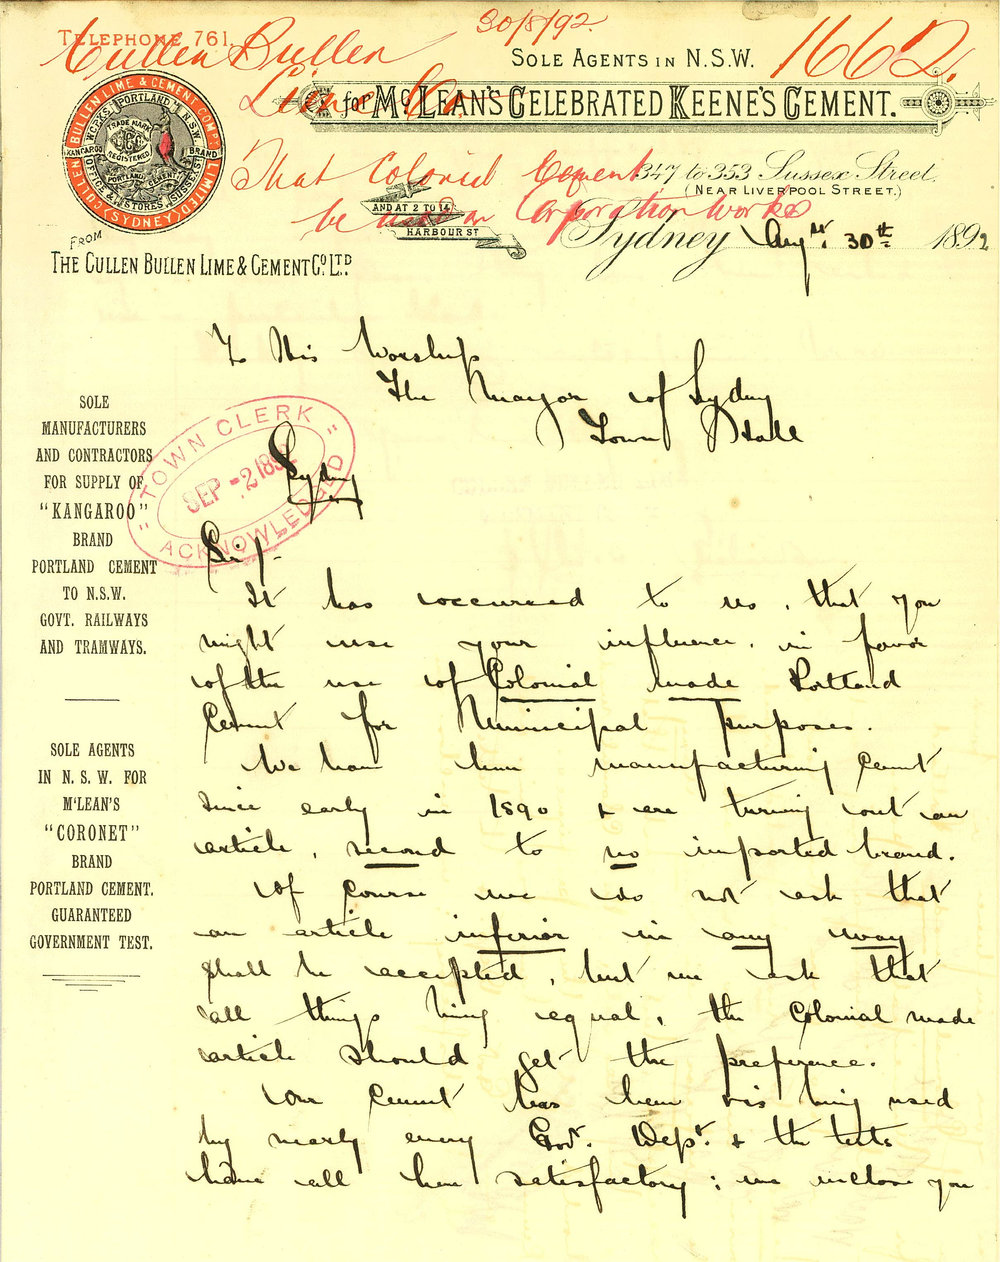 TELEPHONE 761.
30/8/92.
Cullen Bullen
Lime Co.
1662.
SOLE AGENTS IN N.S.W.
for McLEAN'S CELEBRATED KEENE'S CEMENT.
That Colonial Cement
be used on Corporation Works
347 to 353 Sussex Street,
(NEAR LIVERPOOL STREET.)
AND AT 2 TO 14
HARBOUR ST
Sydney Augst. 30th 1892
CULLEN BULLEN LIME & CEMENT COMPY LIMITED
(SYDNEY)
WORKS PORTLAND N.S.W.
TRADE MARK
REGISTERED
KANGAROO BRAND
PORTLAND CEMENT
OFFICE & STORES SUSSEX ST
FROM
THE CULLEN BULLEN LIME & CEMENT CO LTD
To His Worship
The Mayor of Sydney
Town Hall
Sydney
"TOWN CLERK"
SEP -2 1892
ACKNOWLEDGED
SOLE
MANUFACTURERS
AND CONTRACTORS
FOR SUPPLY OF
"KANGAROO"
BRAND
PORTLAND CEMENT
TO N.S.W.
GOVT. RAILWAYS
AND TRAMWAYS.
SOLE AGENTS
IN N. S. W. FOR
M'LEAN'S
"CORONET"
BRAND
PORTLAND CEMENT.
GUARANTEED
GOVERNMENT TEST.
Sir/-
It has occurred to us, that you
might use your influence, in favor
of the use of Colonial made Portland
Cement for Municipal purposes.
We have been manufacturing Cement
since early in 1890 & are turning out an
article, second to no imported brand.
Of course we do not ask that
an article inferior in any way
shall be accepted, but we ask that
all things being equal, the Colonial made
article should get the preference.
Our Cement has been & is being used
by nearly every Govt. Dept. & the tests
have all been satisfactory; we inclose you